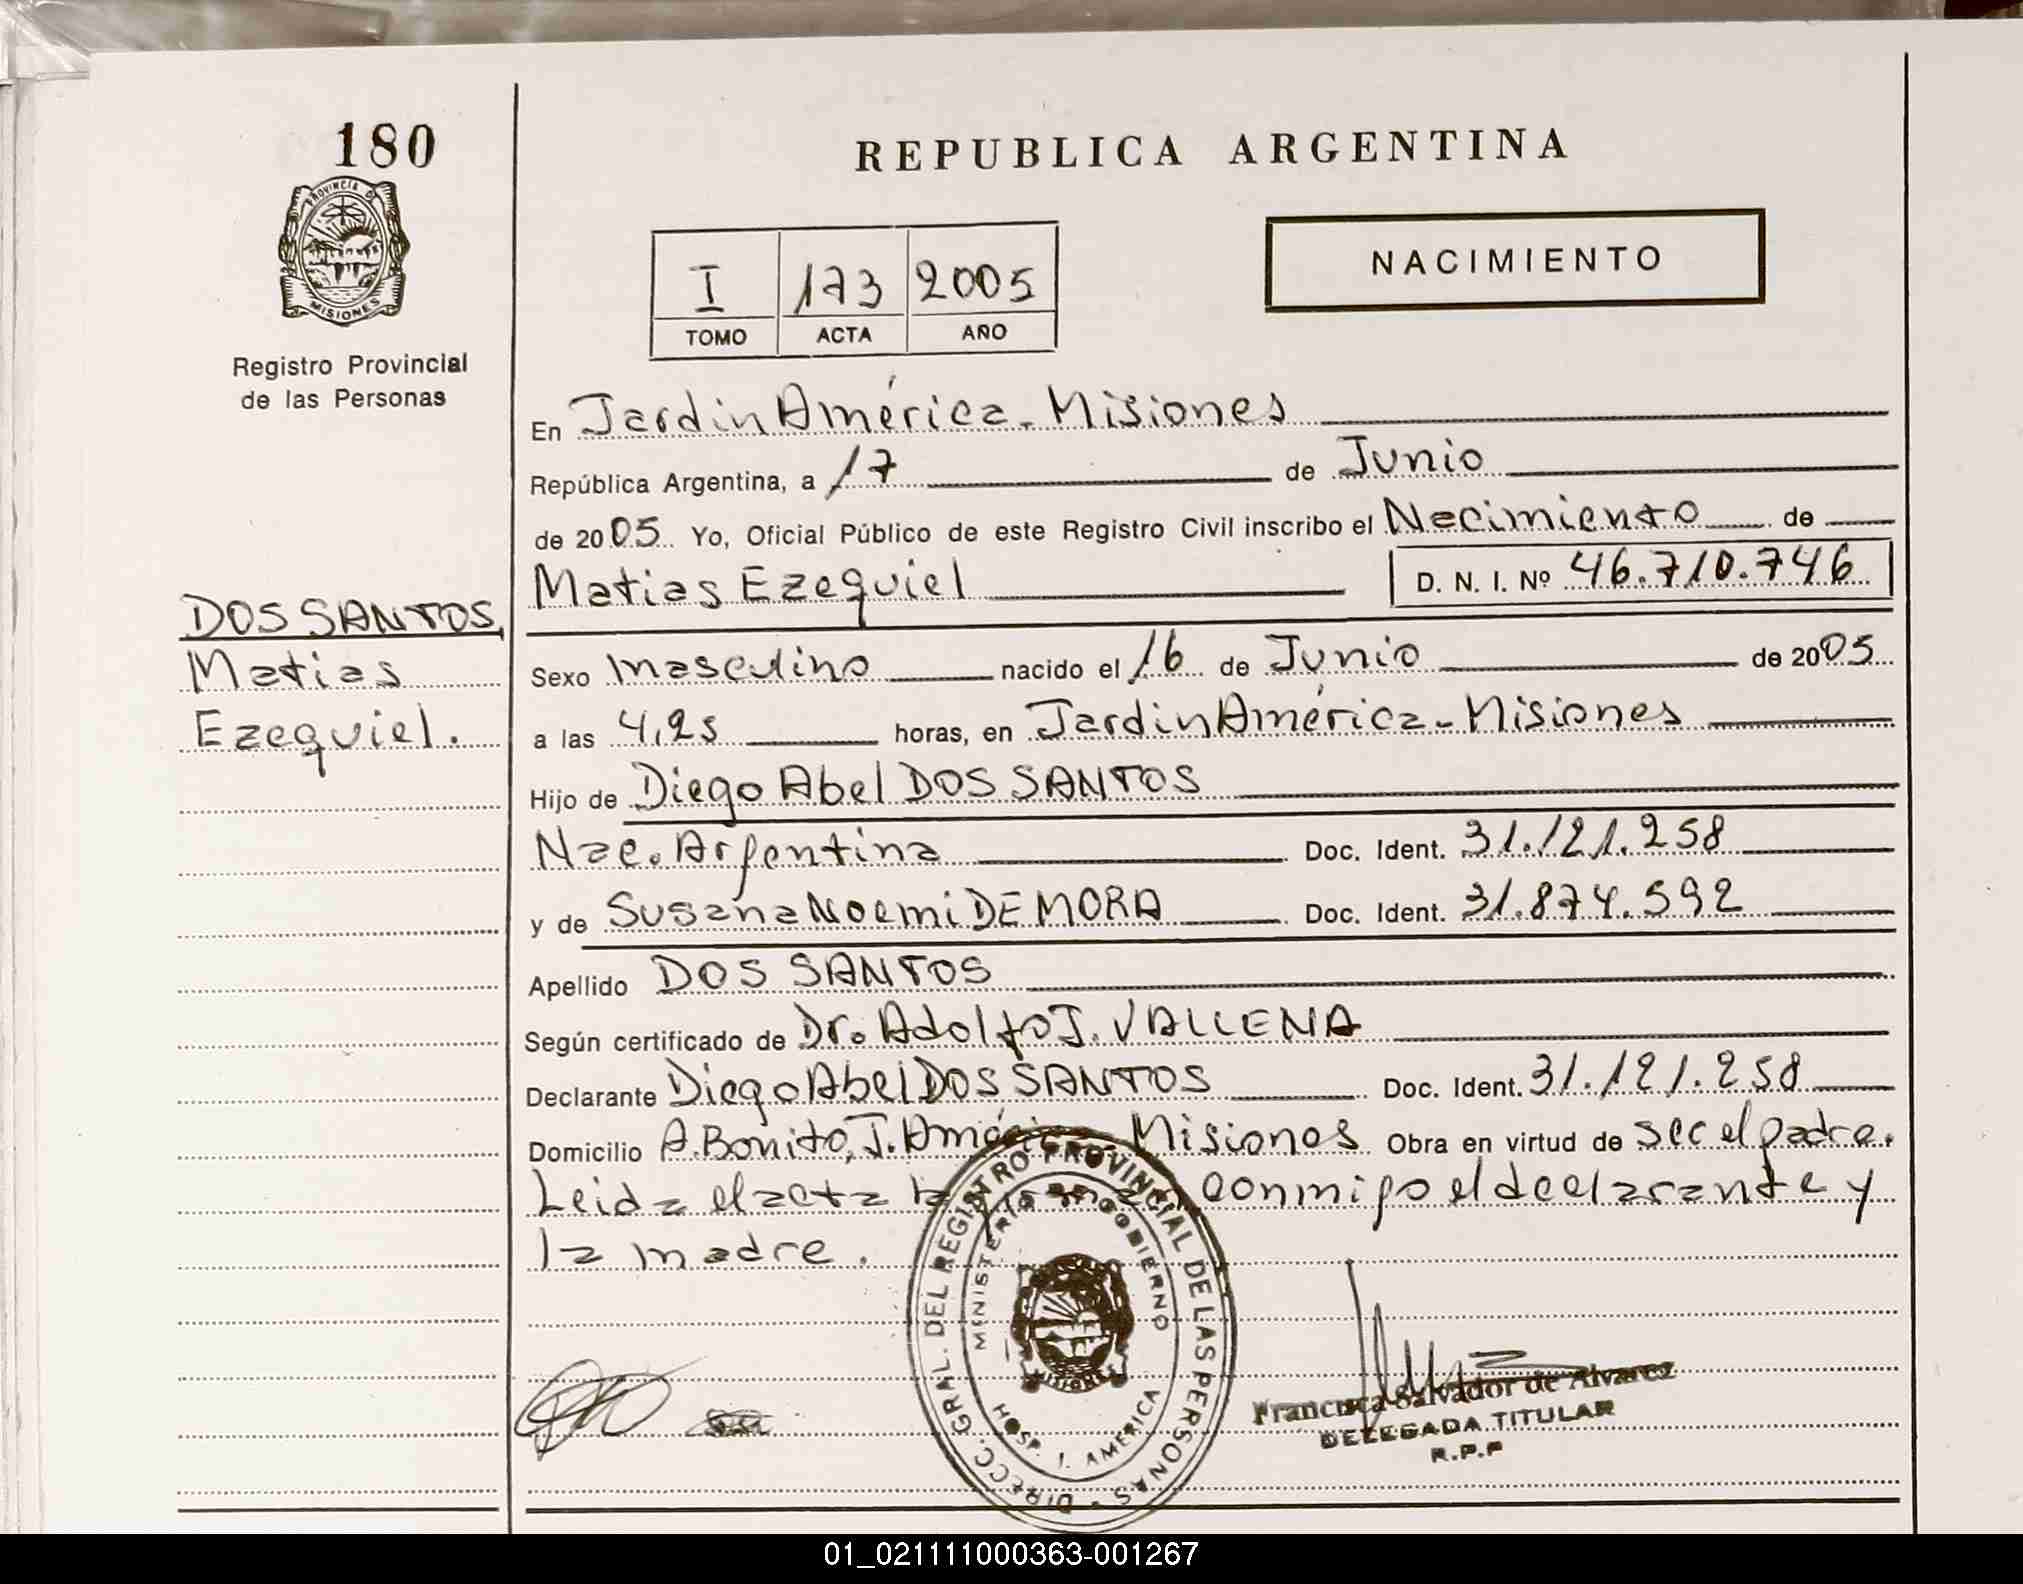 180
REPUBLICA ARGENTINA
PROVINCIA DE
MISIONES
Registro Provincial
de las Personas
NACIMIENTO
I 173 2005
TOMO ACTA AÑO
En Jardin América - Misiones
República Argentina, a 17 de Junio
de 2005 Yo, Oficial Público de este Registro Civil inscribo el Nacimiento de
Matias Ezequiel D. N. I. Nº 46.710.746
DOS SANTOS,
Matias
Ezequiel.
Sexo masculino nacido el 16 de Junio de 2005
a las 4,25 horas, en Jardin América - Misiones
Hijo de Diego Abel DOS SANTOS
Nac. Argentina Doc. Ident. 31.121.258
y de Susana Noemi DE MORA Doc. Ident. 31.874.592
Apellido DOS SANTOS
Según certificado de Dr. Adolfo J. VALLENA
Declarante Diego Abel DOS SANTOS Doc. Ident. 31.121.258
Domicilio A. Bonito, J. América - Misiones Obra en virtud de ser el padre.
Leida el acta la conmigo el declarante y
la madre.
DIRECC. GRAL. DEL REGISTRO PROVINCIAL DE LAS PERSONAS
MINISTERIO DE GOBIERNO
MISIONES
HOSP. J. AMERICA
Francisca Salvador de Alvarez
DELEGADA TITULAR
R.P.P
01_021111000363-001267